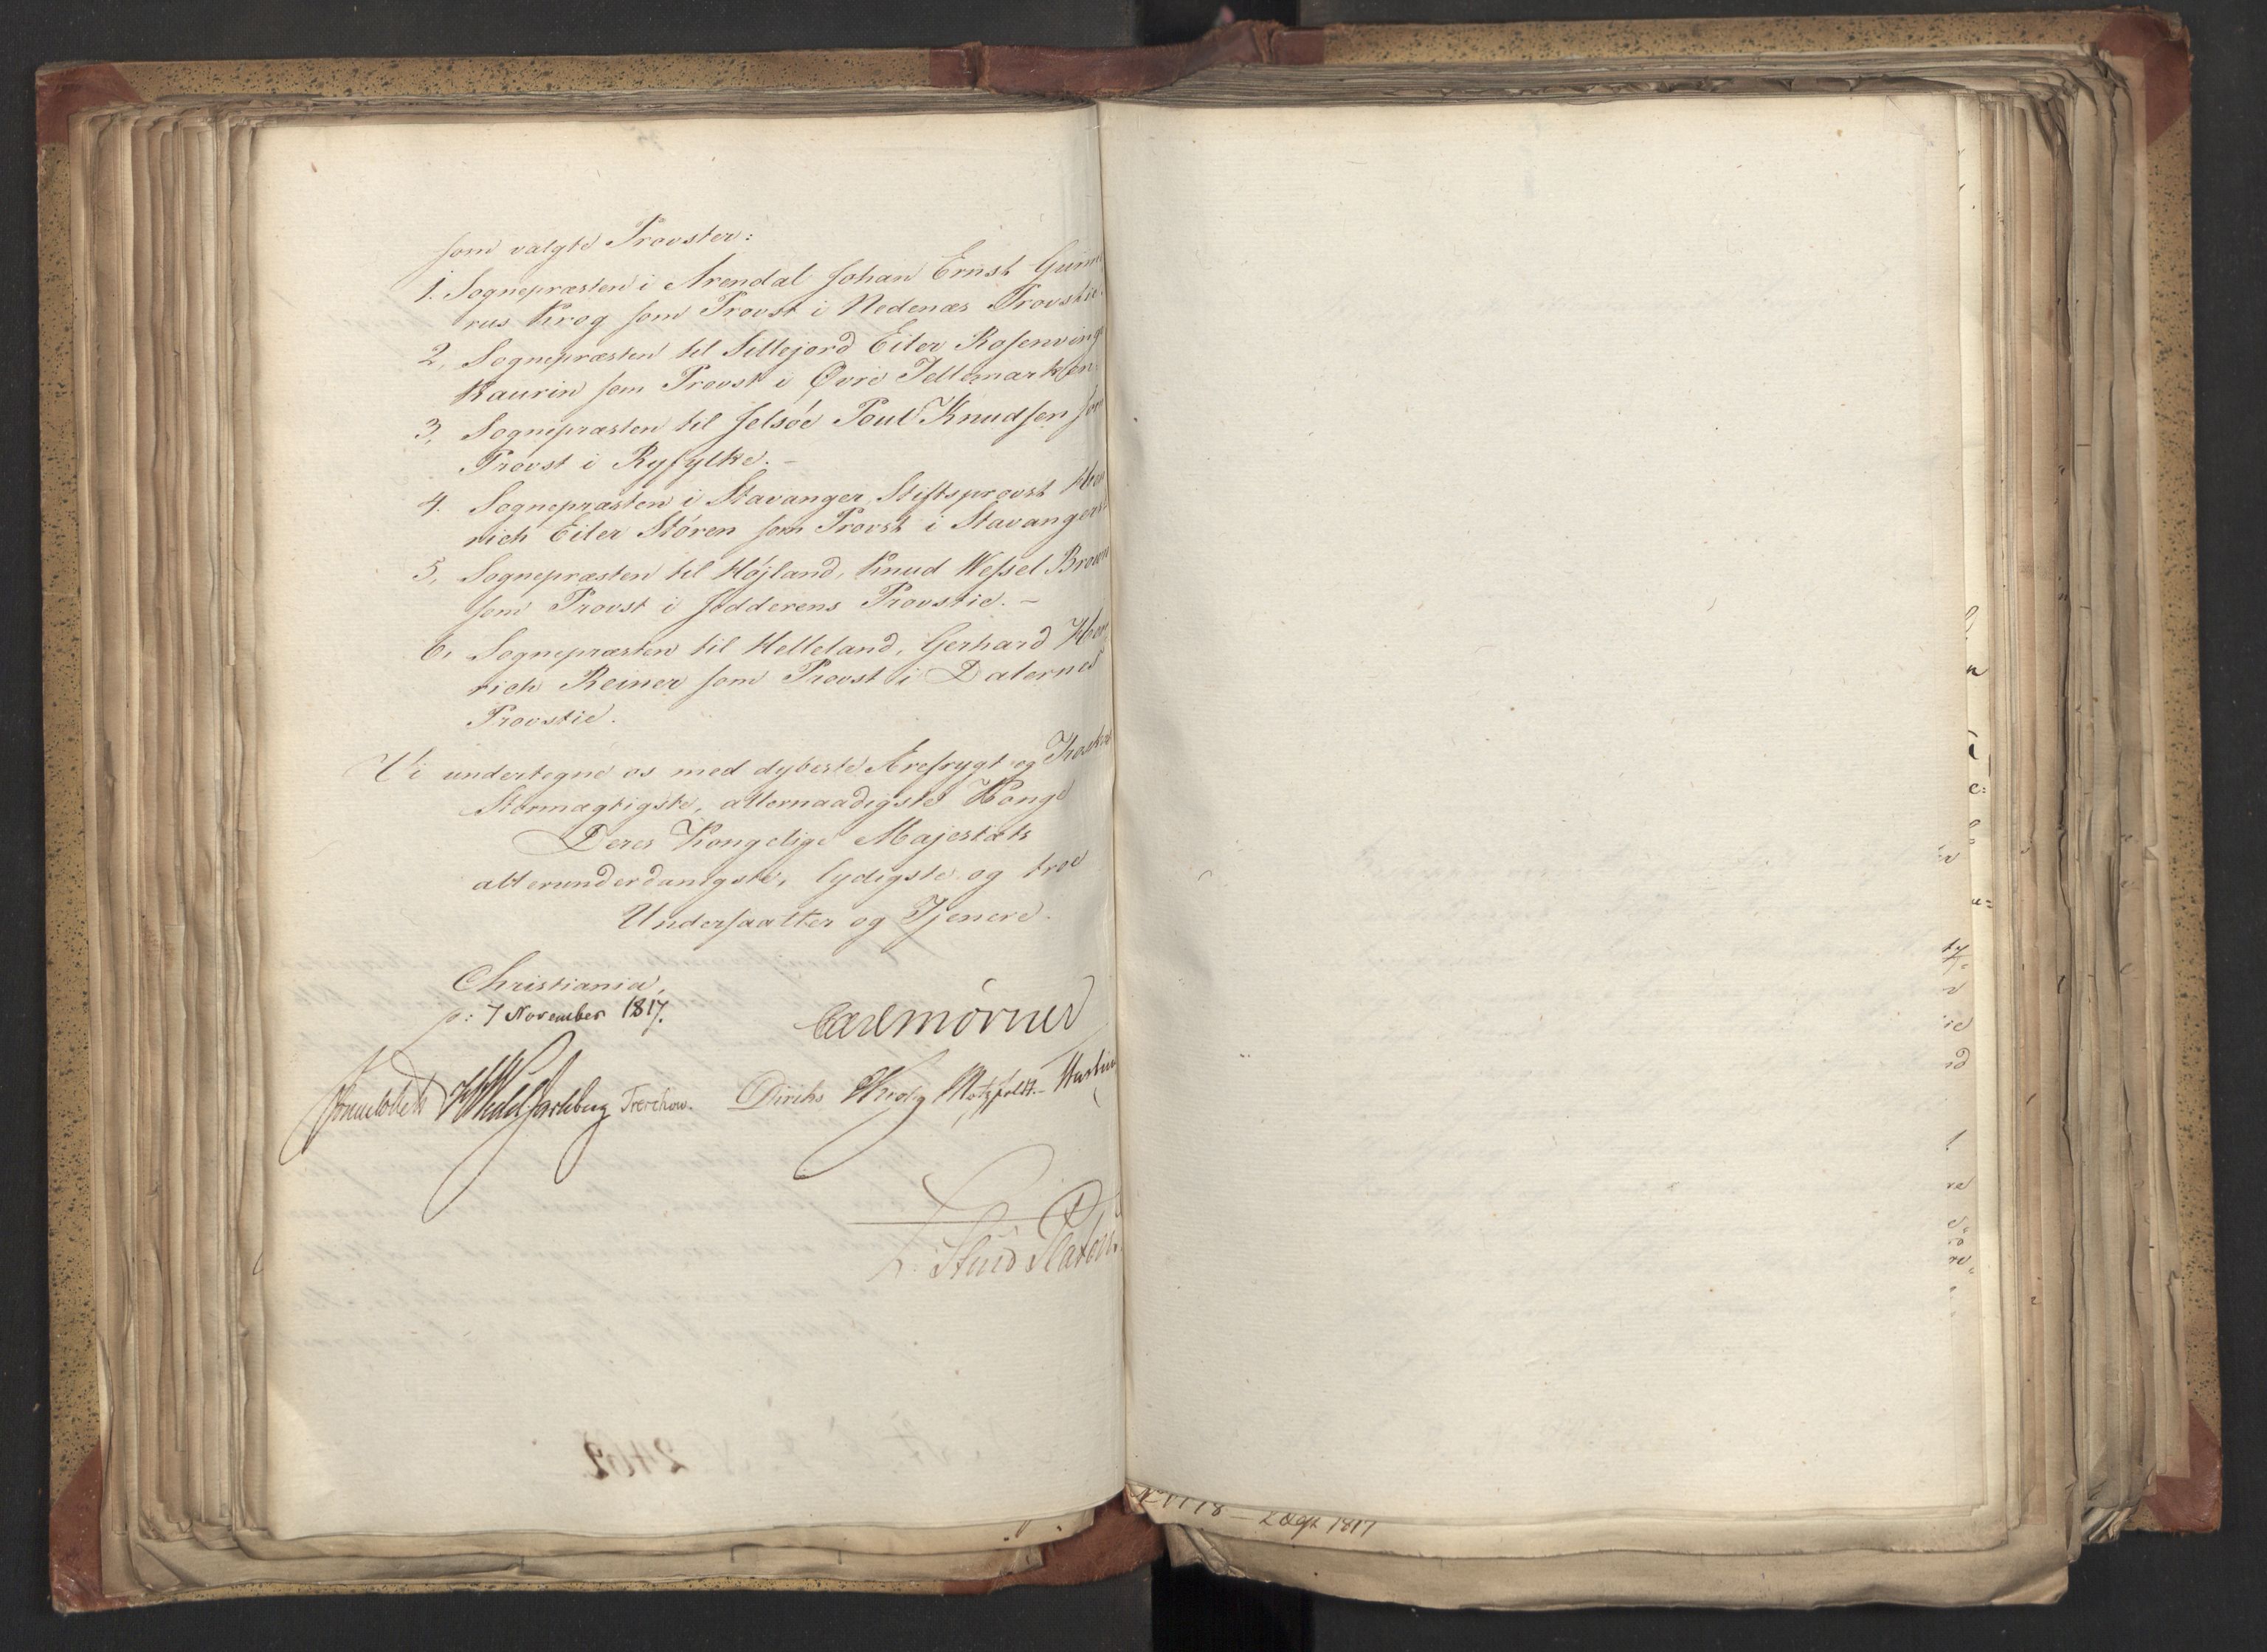 som valgte Provster:
1. Sognepræsten i Arendal Johan Ernst Gunne
rus Krog som Provst i Nedenæs Provstie.
2, Sognepræsten til Sillejord Eiler Rosenvinge
Kaurin som Provst i Øvre Tellemarken.
3, Sognepræsten til Jelsöe Poul Knudsen som
Provst i Ryfylke. –
4. Sognepræsten i Stavanger, Stiftsprovst Hen
rich Eiler Stören som Provst i Stavanger
5, Sognepræsten til Höjland, Knud Wessel Brown
som Provst i Jedderens Provstie. –
6, Sognepræsten til Helleland, Gerhard Hen
rich Reiner som Provst i Dalernes
Provstie.
Vi undertegne os med dybeste Ærefrygt og Troskab
Stormægtigste, allernaadigste Konge
Deres Kongelige Majestæts
allerunderdanigste, lydigste og troe
Undersaatter og Tjenere.
Christiania,
p: 7 November 1817.
Carl Mörner
Sommerhielm HWedel Jarlsberg Treschow. Diriks Krog Motzfeldt
2462
1817